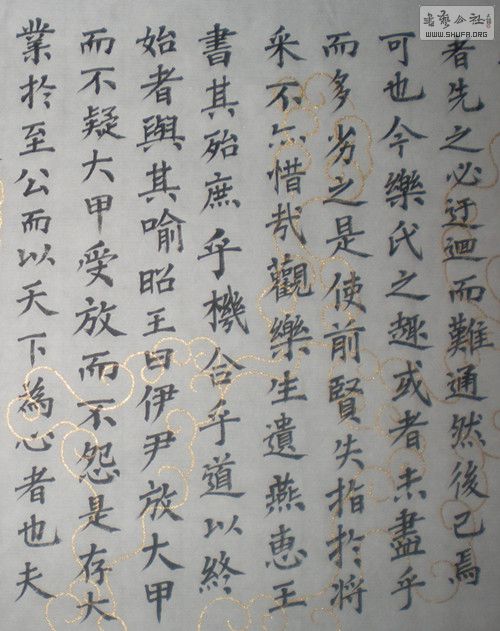 者先之必迂迴而難通然後已焉
可也今樂氏之趣或者未盡乎
而多劣之是使前賢失指於将
来不亦惜哉觀樂生遺燕惠王
書其殆庶乎機合乎道以終
始者與其喻昭王曰伊尹放大甲
而不疑大甲受放而不怨是存大
業於至公而以天下為心者也夫
書藝公社
WWW.SHUFA.ORG